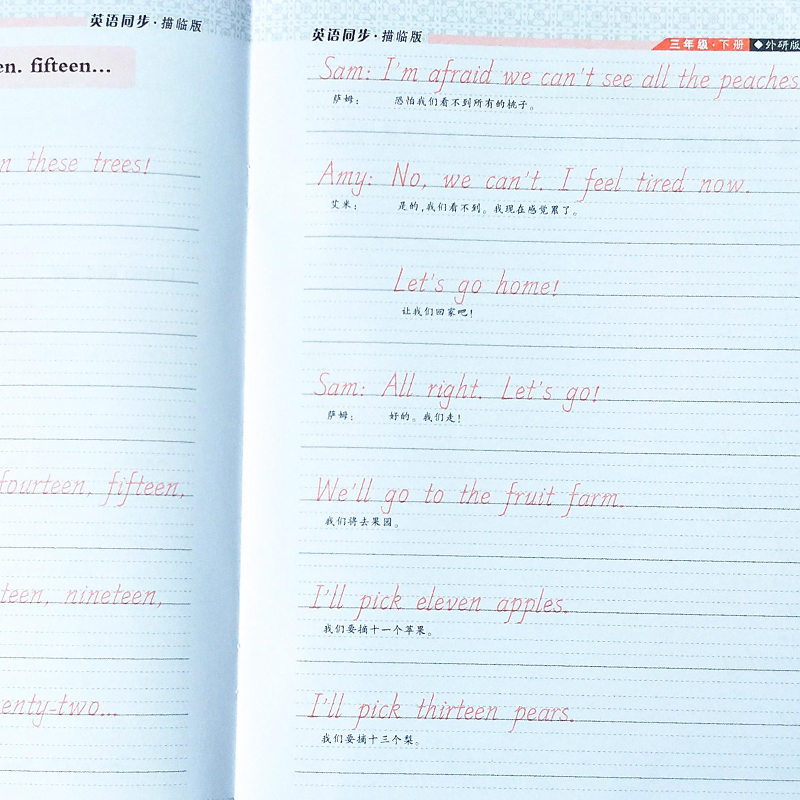 英语同步·描临版
fifteen...
these trees!
fourteen, fifteen,
nineteen,
英语同步·描临版
三年级·下册 ◆外研版
Sam: I'm afraid we can't see all the peaches
萨姆： 恐怕我们看不到所有的桃子。
Amy: No, we can't. I feel tired now.
艾米： 是的,我们看不到。我现在感觉累了。
Let's go home!
让我们回家吧!
Sam: All right. Let's go!
萨姆： 好的。我们走!
We'll go to the fruit farm.
我们将去果园。
I'll pick eleven apples.
我们要摘十一个苹果。
I'll pick thirteen pears.
我们要摘十三个梨。